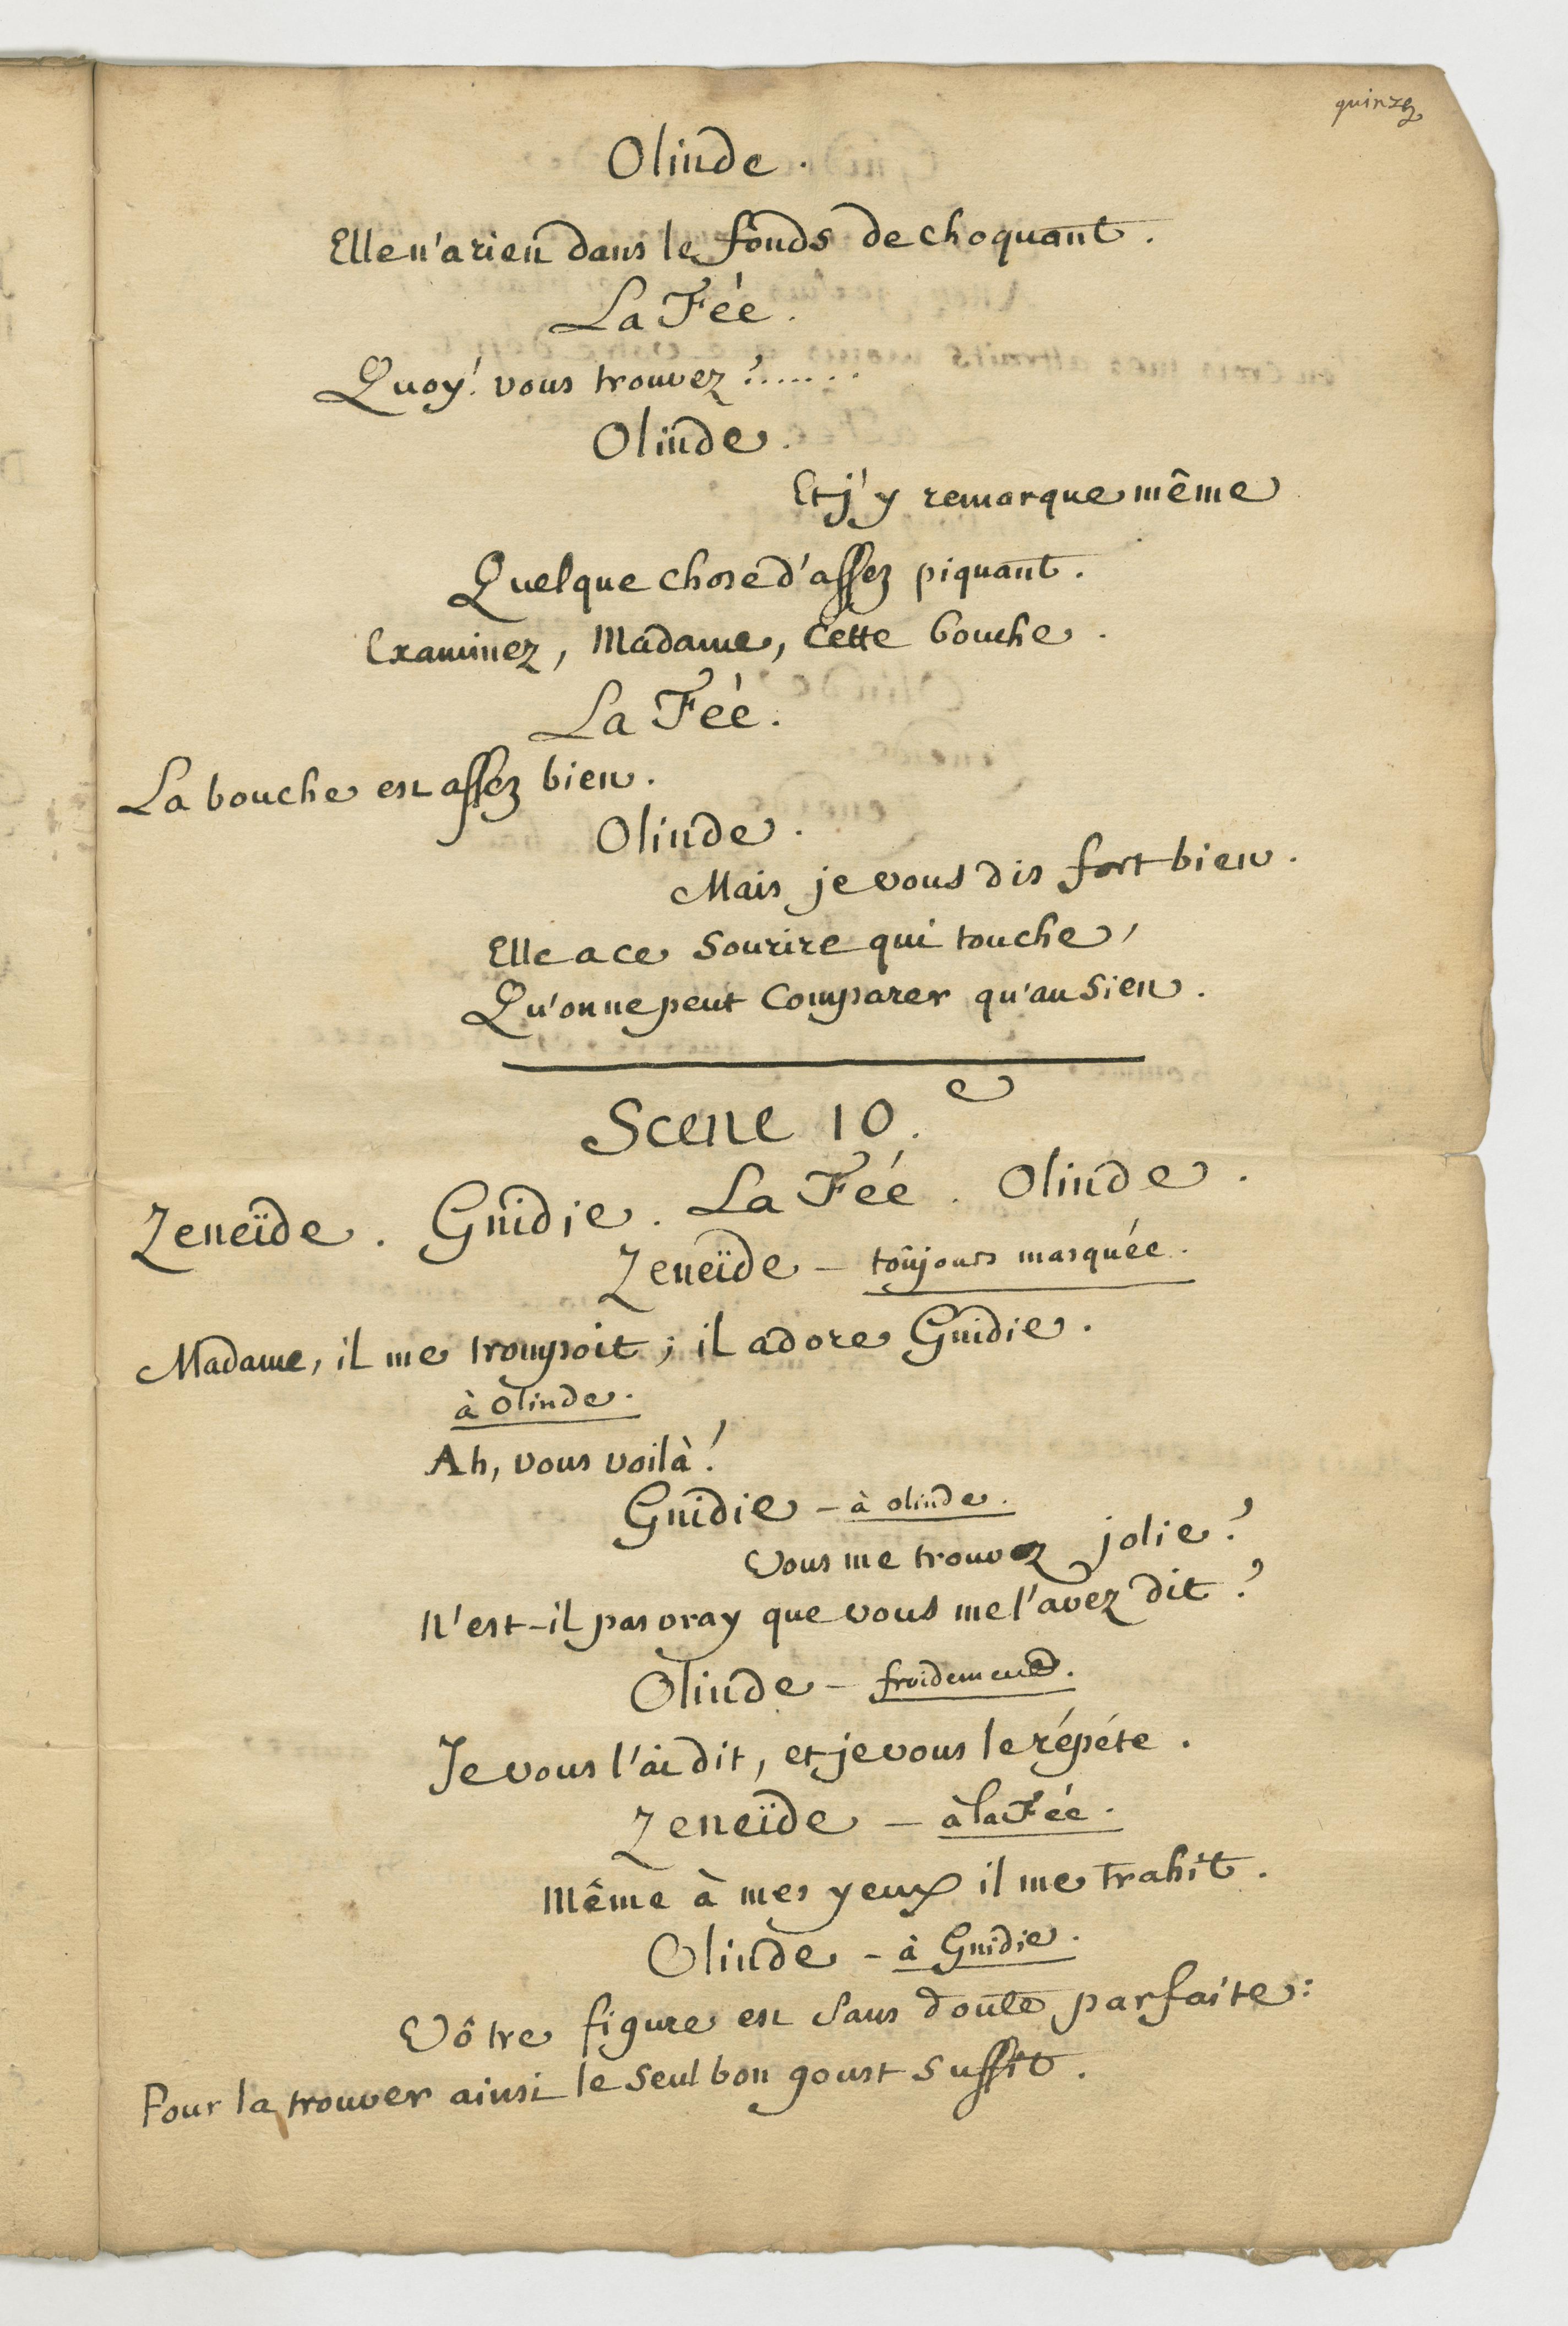 quinze
Olinde.
Elle n'a rien dans le fonds de choquant.
La Fée.
Quoy! vous trouvez?......
Olinde.
Et j'y remarque même
Quelque chose d'assez piquant.
Examinez, Madame, cette bouche.
La Fée.
La bouche est assez bien.
Olinde.
Mais je vous dis fort bien.
Elle a ce sourire qui touche,
Qu'on ne peut comparer qu'au sien.
Scene 10.e
Zeneïde. Gnidie. La Fée. Olinde.
Zeneïde - toûjours masquée.
Madame, il me trompoit; il adore Gnidie.
à Olinde.
Ah, vous voilà!
Gnidie - à Olinde.
Vous me trouvez jolie?
N'est-il pas vray que vous me l'avez dit?
Olinde - froidement.
Je vous l'ai dit, et je vous le répéte.
Zeneïde - à la Fée.
Même à mes yeux il me trahit.
Olinde - à Gnidie.
Vôtre figure est sans doute parfaite:
Pour la trouver ainsi le seul bon goust suffit.